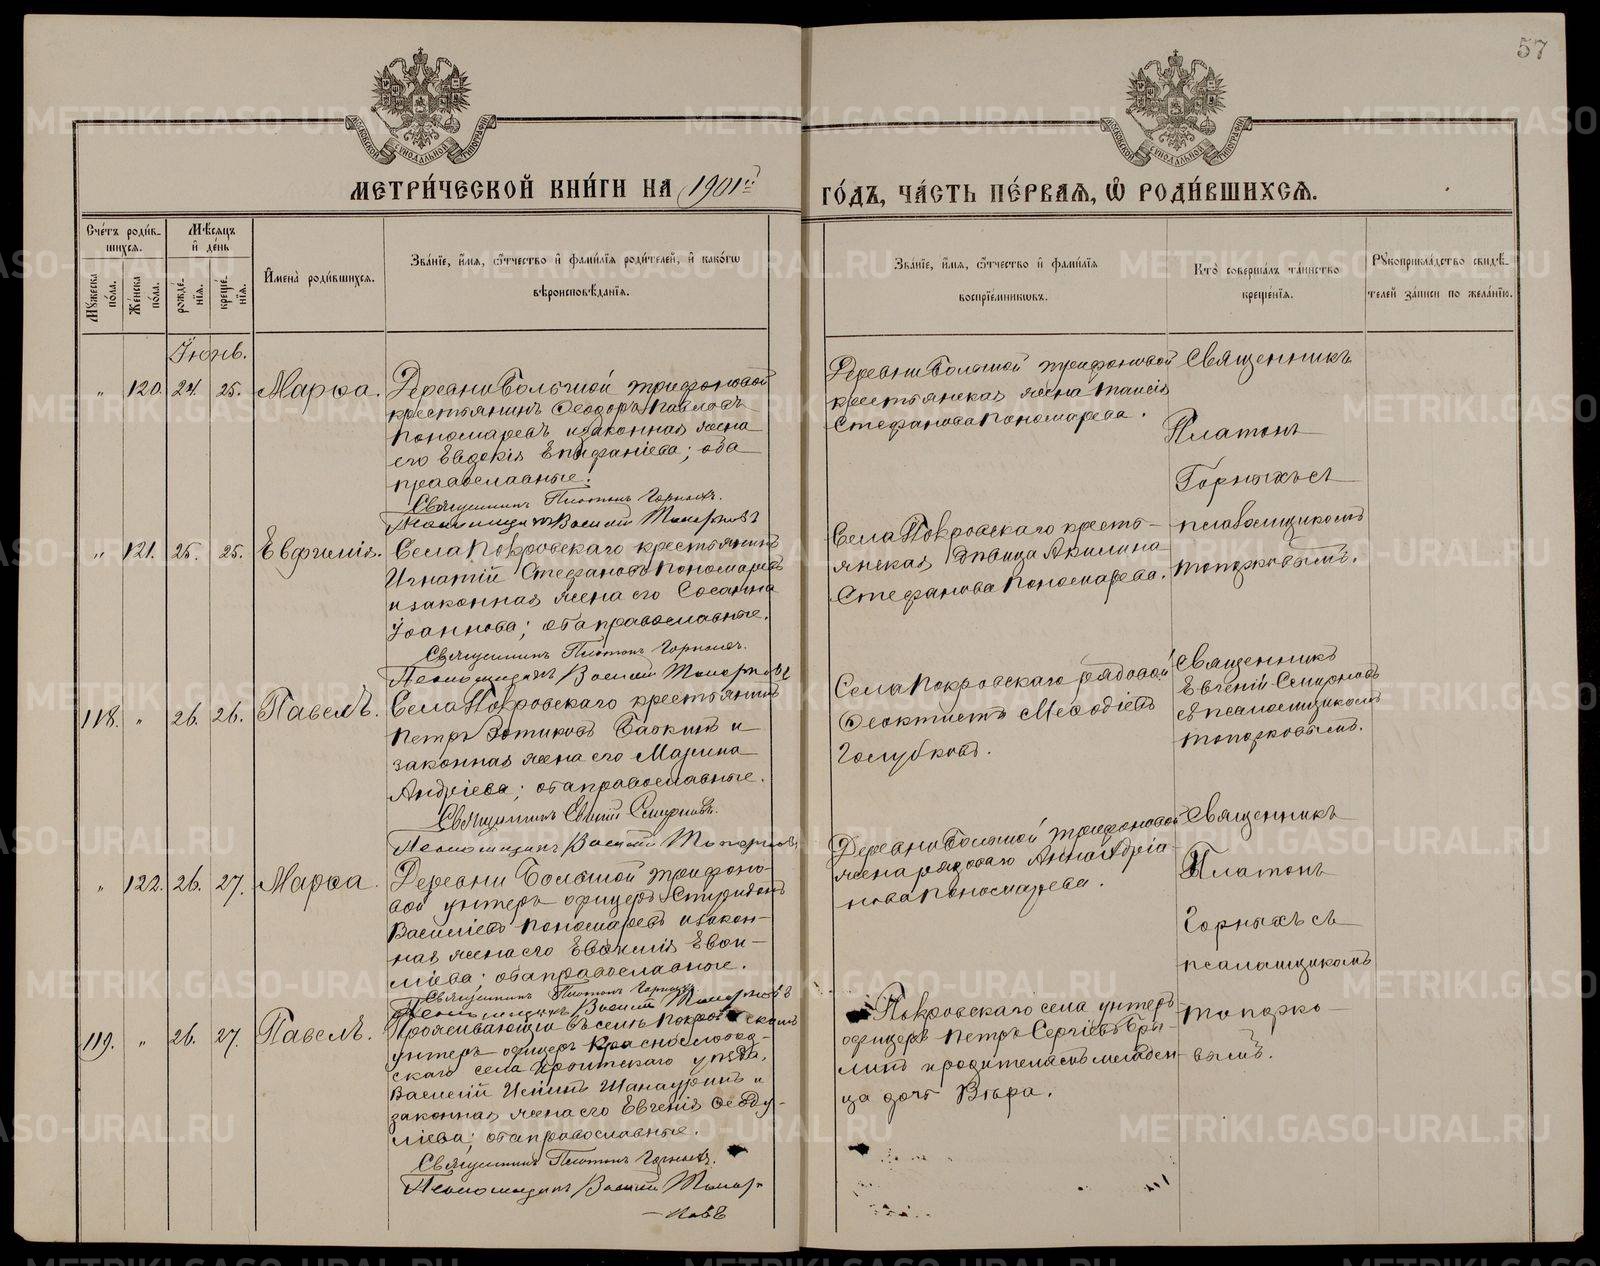 57
МЕТРИ́ЧЕСКОЙ КНИ́ГИ НА 1901й ГО́ДЪ, ЧА́СТЬ ПЕ́РВАѦ, Ѡ҆ РОДИ́ВШИХСѦ.
Сче́тъ роди́в-
шихсѧ.
Мѣ́сѧцъ
и҆ де́нь
Мꙋ́жеска
по́ла.
Же́нска
по́ла.
рожде́-
нїѧ.
креще́-
нїѧ.
И҆мена̀ роди́вшихсѧ.
Зва́нїе, и҆́мѧ, ѻ҆́тчество и҆ фами́лїѧ роди́телей, и҆ како́гѡ
вѣроисповѣ́данїѧ.
Зва́нїе, и҆́мѧ, ѻ҆́тчество и҆ фами́лїѧ
воспрїе́мникѡвъ.
Кто̀ соверша́лъ та́инство
креще́нїѧ.
Рꙋкоприкла́дство свидѣ́-
телей за́писи по жела́нїю.
Іюнь.
" 120. 24. 25. Марѳа.
Деревни Большой Трифоновой
крестьянинъ Ѳеодоръ Павловъ
Пономаревъ и законная жена
его Евдокія Епифаніева; оба
православные.
Священникъ Платонъ Горныхъ.
Псаломщикъ Василій Топорковъ
Деревни Большой Трифоновой
крестьянская жена Таисія
Стефанова Пономарева.
Священникъ
Платонъ
Горныхъ съ
псаломщикомъ
Топорковымъ.
" 121. 25. 25. Евфимія.
Села Покровскаго крестьянинъ
Игнатій Стефановъ Пономаревъ
и законная жена его Сосанна
Іоаннова; оба православные.
Священникъ Платонъ Горныхъ.
Псаломщикъ Василій Топорковъ
Села Покровскаго кресть-
янская дѣвица Акилина
Стефанова Пономарева.
118. " 26. 26. Павелъ.
Села Покровскаго крестьянинъ
Петръ Зотиковъ и
законная жена его Марина
Андріева; оба православные.
Священникъ Евгеній Смирновъ.
Псаломщикъ Василій Топорковъ
Села Покровскаго рядовой
Ѳеоктистъ Меѳодіевъ
Голубковъ.
Священникъ
Евгеній Смирновъ
съ псаломщикомъ
Топорковымъ.
" 122. 26. 27. Марѳа.
Деревни Большой Трифоно-
вой унтеръ офицеръ Спиридонъ
Василіевъ Пономаревъ и закон-
ная жена его Евфимія Евѳи-
міева; оба православные.
Священникъ Платонъ Горныхъ
Псаломщикъ Василій Топорковъ
Деревни Большой Трифоновой
жена рядоваго Анна Адріа-
нова Пономарева.
Священникъ
Платонъ
Горныхъ съ
псаломщикомъ
Топорко-
вымъ.
119. " 26. 27. Павелъ.
Проживающій въ селѣ Покровскомъ
унтеръ-офицеръ Краснослобод-
скаго села Ирбитскаго уѣзда,
Василій Шанауринъ и
законная жена его Евгенія Ѳеоду-
ліева; оба православные.
Священникъ Платонъ Горныхъ.
Псаломщикъ Василій Топор-
ковъ
Покровскаго села унтеръ-
офицеръ Петръ Сергіевъ Бри-
линъ и родителя младен-
ца дочь Вѣра.
METRIKI.GASO-URAL.RU